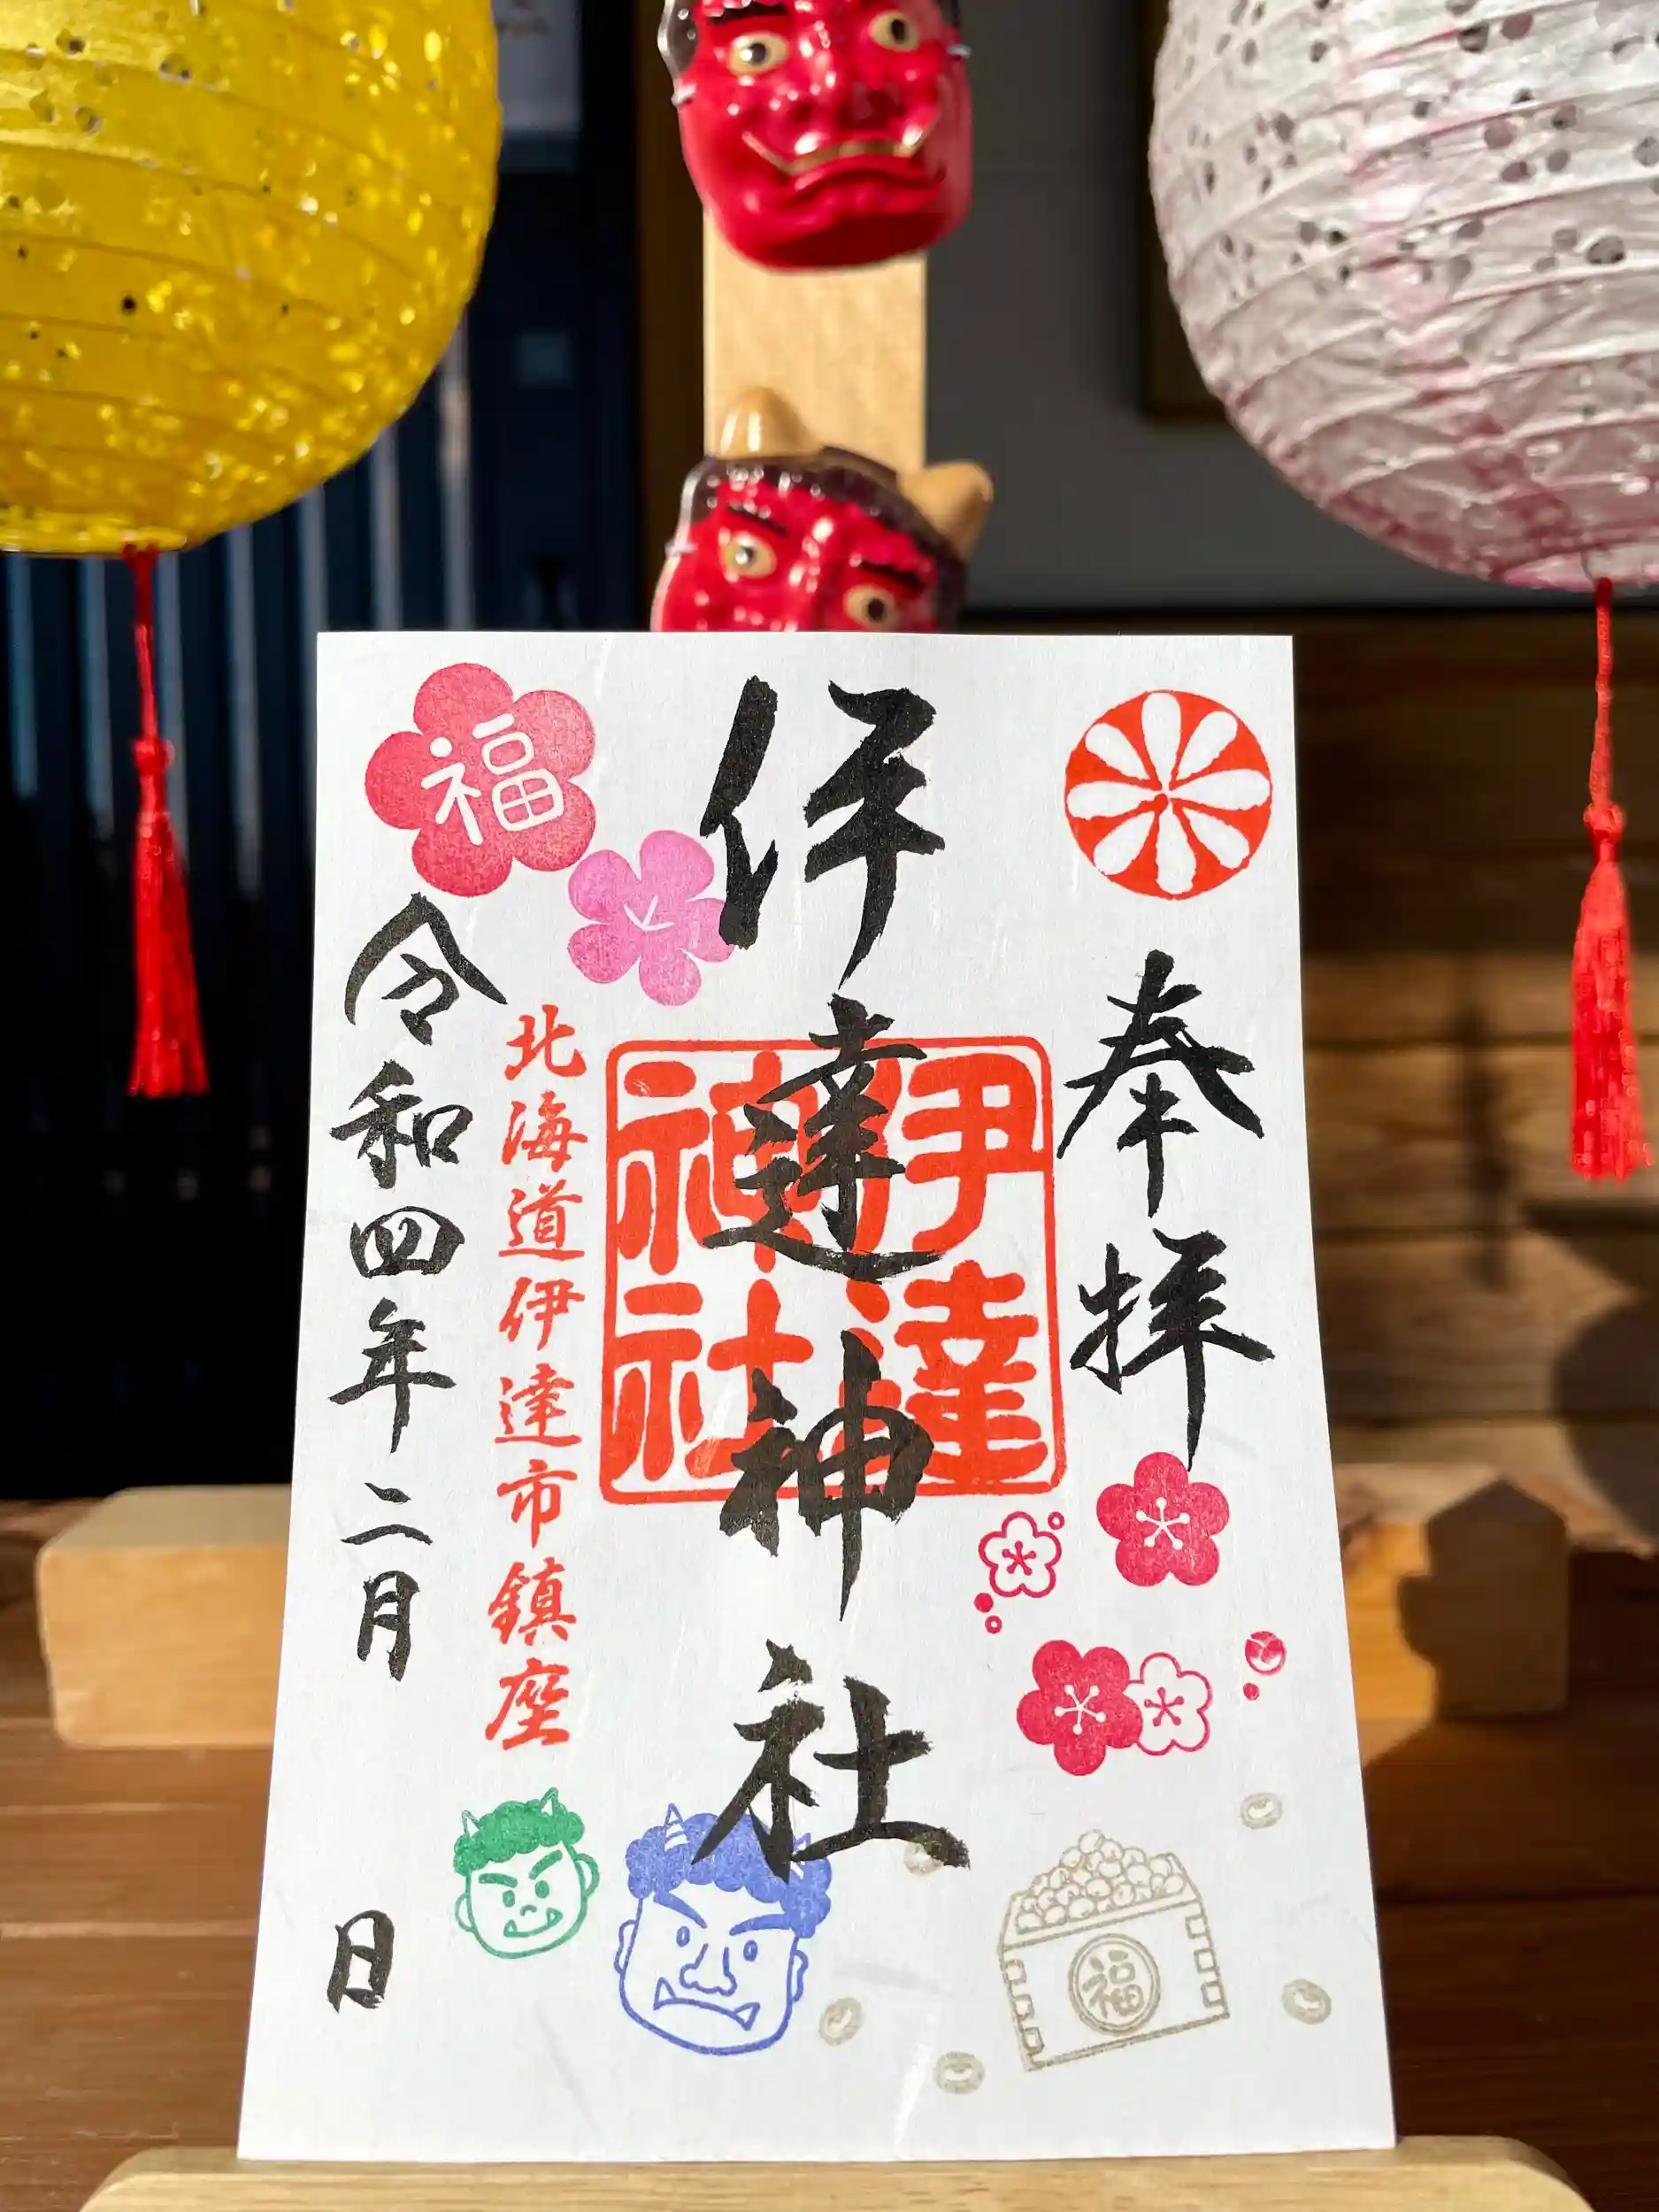 奉拝
伊達神社
伊達
神社
福
北海道伊達市鎮座
令和四年二月 日
福